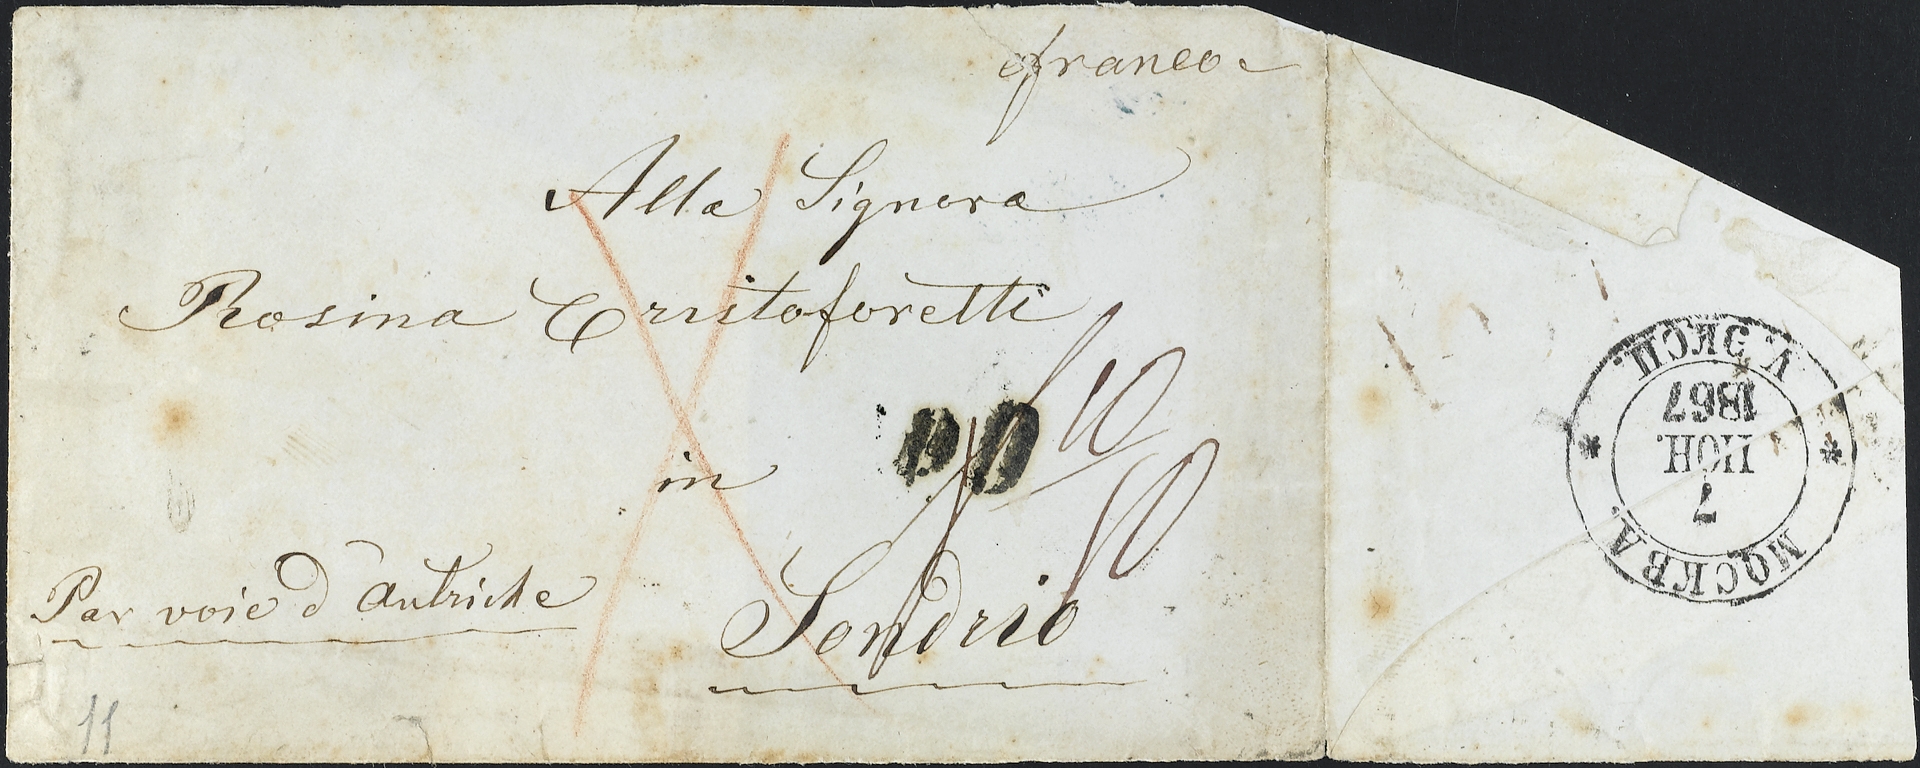 franco
Alla Signora
Rosina Cristoforetti
in
Sondrio
Par voie d'Autriche
PD
11
МОСКВА.
7
ІЮН.
1867
V. ЭКСП.